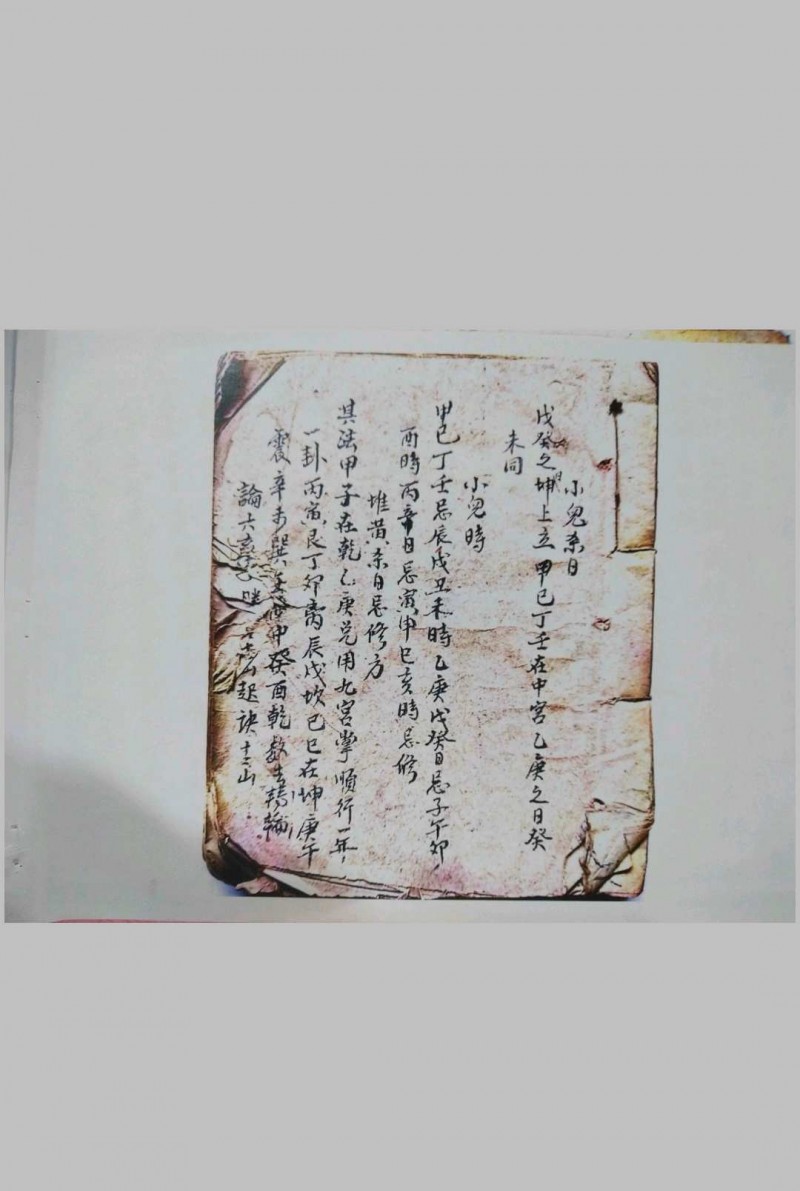 小兒杀日
戊癸之坤上立甲巳丁壬在中宮乙庚之日癸
未同
小兒時
甲巳丁壬忌辰戌丑未時乙庚戊癸日忌子午卯
酉時丙辛日忌寅申巳亥時忌修
堆黃杀日忌修方
其法甲子在乾乙庚兑用九宮掌順行一年
一卦丙寅艮丁卯离辰戊坎巳巳在坤庚午
震辛未巽壬申癸酉乾数去轉輪
論六 起訣十二山